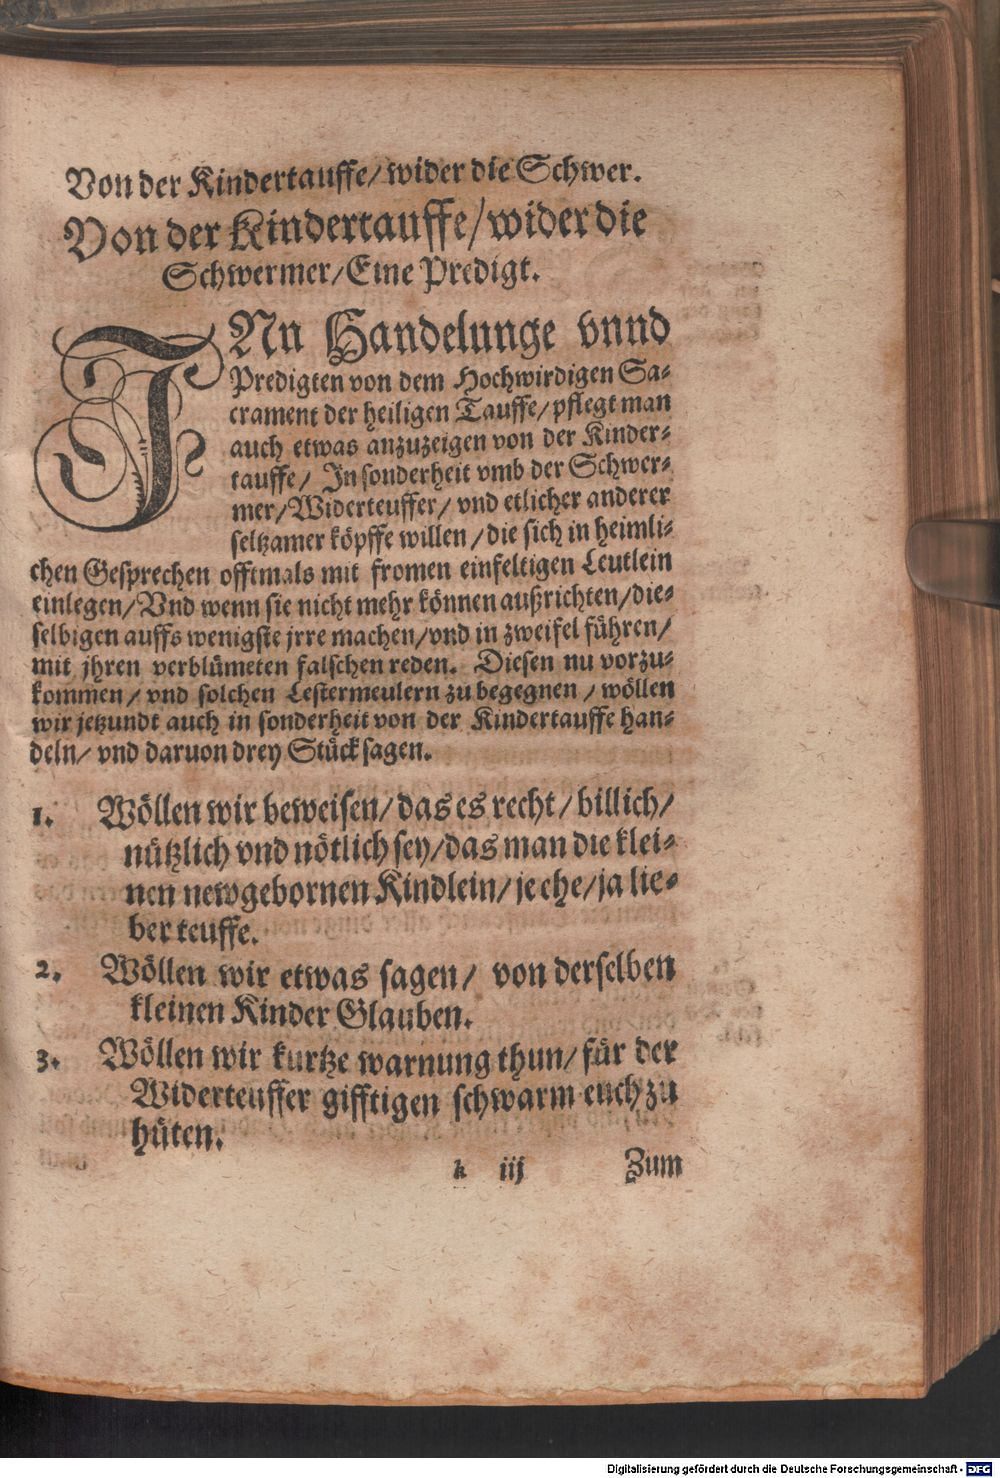 Von der Kindertauffe/wider die Schwer.
Von der Kindertauffe/wider die
Schwermer/Eine Predigt.
INn Handelunge vnnd
Predigten von dem Hochwirdigen Sa-
crament der heiligen Tauffe/pflegt man
auch etwas anzuzeigen von der Kinder-
tauffe/ In sonderheit vmb der Schwer-
mer/Widerteuffer/vnd etlicher anderer
seltzamer köpffe willen/die sich in heimli-
chen Gesprechen offtmals mit fromen einfeltigen Leutlein
einlegen/Vnd wenn sie nicht mehr können außrichten/die-
selbigen auffs wenigste jrre machen/vnd in zweifel führen/
mit jhren verblümeten falschen reden. Diesen nu vorzu-
kommen/vnd solchen Lestermeulern zu begegnen/wöllen
wir jetzundt auch in sonderheit von der Kindertauffe han-
deln/ vnd daruon drey Stück sagen.
1. Wöllen wir beweisen/das es recht/billich/
nützlich vnd nötlich sey/das man die klei-
nen newgebornen Kindlein/je ehe/ja lie-
ber teuffe.
2. Wöllen wir etwas sagen/ von derselben
kleinen Kinder Glauben.
3. Wöllen wir kurtze warnung thun/für der
Widerteuffer gifftigen schwarm euch zu
hüten.
k iij Zum
Digitalisierung gefördert durch die Deutsche Forschungsgemeinschaft - DFG